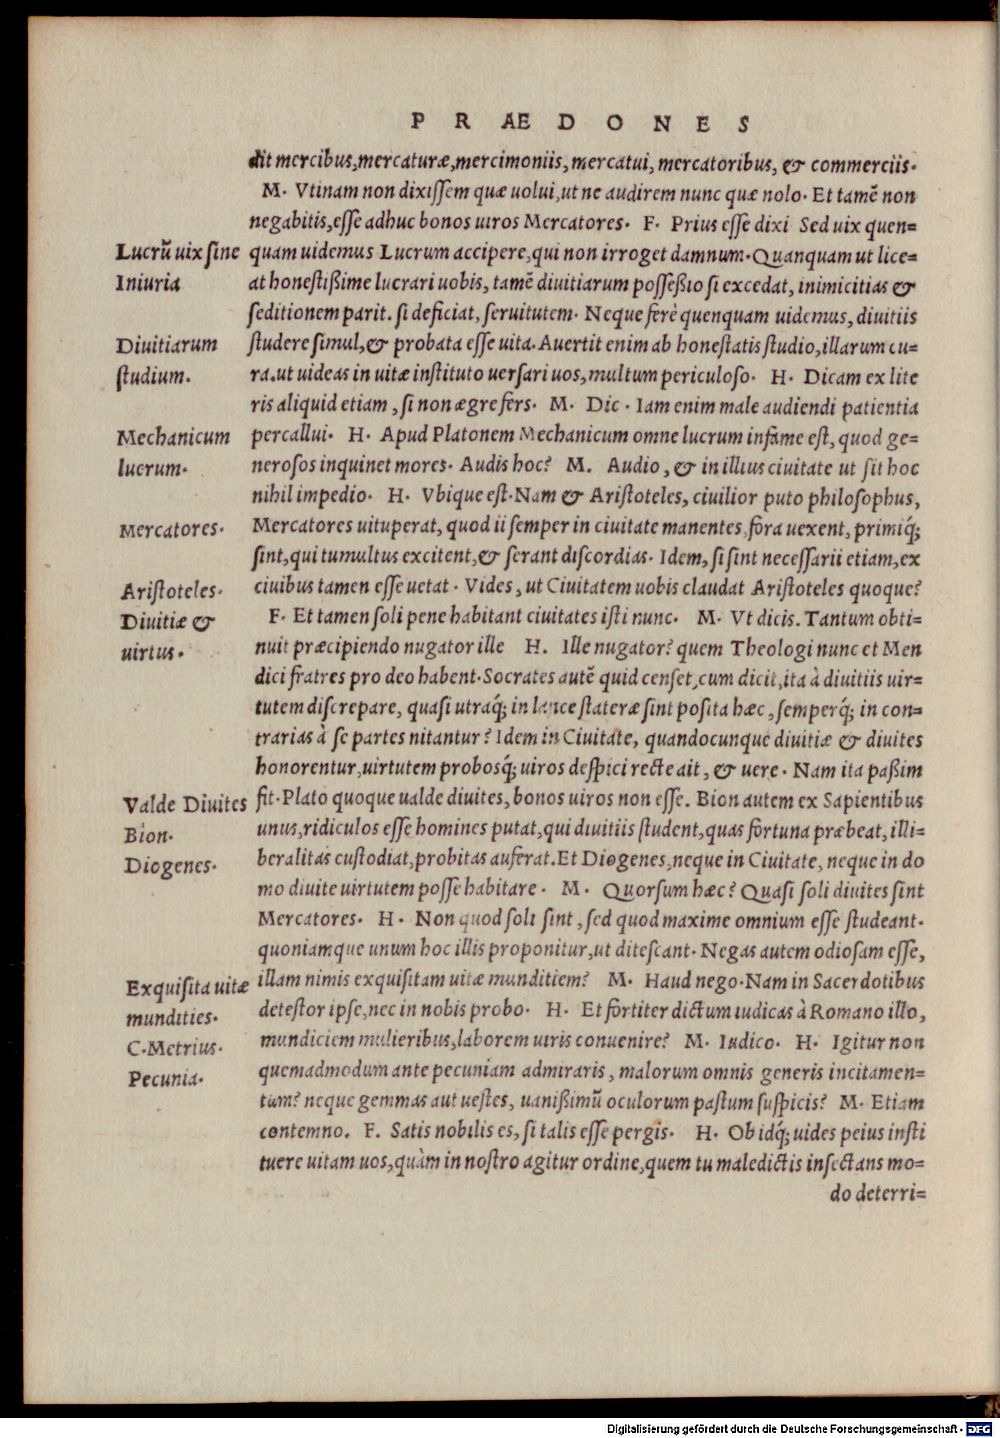 PRÆDONES
dit mercibus,mercaturæ,mercimoniis, mercatui, mercatoribus, & commerciis.
M. Vtinam non dixiſſem quæ uolui,ut ne audirem nunc quæ nolo. Et tamẽ non
negabitis,eſſe adhuc bonos uiros Mercatores. F. Prius eſſe dixi Sed uix quen=
Lucrũ uix ſine
quam uidemus Lucrum accipere,qui non irroget damnum.Quanquam ut lice=
Iniuria
at honeſtißime lucrari uobis, tamẽ diuitiarum poſſeßio ſi excedat, inimicitias &
ſeditionem parit. ſi deficiat, ſeruitutem. Neque ferè quenquam uidemus, diuitiis
Diuitiarum
ſtudere ſimul,& probata eſſe uita. Auertit enim ab honeſtatis ſtudio,illarum cu=
ſtudium.
ra.ut uideas in uitæ inſtituto uerſari uos,multum periculoſo. H. Dicam ex lite
ris aliquid etiam , ſi non ægre fers. M. Dic . Iam enim male audiendi patientia
Mechanicum
percallui. H. Apud Platonem Mechanicum omne lucrum infame eſt, quod ge=
lucrum.
neroſos inquinet mores. Audis hoc? M. Audio , & in illius ciuitate ut ſit hoc
nihil impedio. H. Vbique eſt.Nam & Ariſtoteles, ciuilior puto philoſophus,
Mercatores.
Mercatores uituperat, quod ii ſemper in ciuitate manentes,fora uexent, primiq́;
ſint,qui tumultus excitent,& ſerant diſcordias. Idem, ſi ſint neceſſarii etiam,ex
Ariſtoteles.
ciuibus tamen eſſe uetat . Vides , ut Ciuitatem uobis claudat Ariſtoteles quoque?
Diuitiæ &
F. Et tamen ſoli pene habitant ciuitates iſti nunc. M. Vt dicis. Tantum obti=
uirtus.
nuit præcipiendo nugator ille H. Ille nugator? quem Theologi nunc et Men
dici fratres pro deo habent.Socrates autẽ quid cenſet,cum dicit,ita à diuitiis uir=
tutem diſcrepare, quaſi utraq́; in lance ſtateræ ſint poſita hæc , ſemperq́; in con=
trarias à ſe partes nitantur? Idem in Ciuitate, quandocunque diuitiæ & diuites
honorentur,uirtutem probosq́; uiros deſpici recte ait , & uere . Nam ita paßim
Valde Diuites
fit.Plato quoque ualde diuites, bonos uiros non eſſe. Bion autem ex Sapientibus
Bion.
unus,ridiculos eſſe homines putat,qui diuitiis ſtudent,quas fortuna præbeat, illi=
Diogenes.
beralitas cuſtodiat,probitas auferat.Et Diogenes,neque in Ciuitate, neque in do
mo diuite uirtutem poſſe habitare . M. Quorſum hæc? Quaſi ſoli diuites ſint
Mercatores. H. Non quod ſoli ſint , ſed quod maxime omnium eſſe ſtudeant.
quoniamque unum hoc illis proponitur,ut diteſcant. Negas autem odioſam eſſe,
Exquiſita uitæ
illam nimis exquiſitam uitæ munditiem? M. Haud nego.Nam in Sacerdotibus
mundities.
deteſtor ipſe,nec in nobis probo. H. Et fortiter dictum iudicas à Romano illo,
C.Metrius.
mundiciem mulieribus,laborem uiris conuenire? M. Iudico. H. Igitur non
Pecunia.
quemadmodum ante pecuniam admiraris , malorum omnis generis incitamen=
tum? neque gemmas aut ueſtes, uanißimũ oculorum paſtum ſuſpicis? M. Etiam
contemno. F. Satis nobilis es, ſi talis eſſe pergis. H. Ob idq́; uides peius inſti
tuere uitam uos,quàm in noſtro agitur ordine,quem tu maledictis inſectans mo=
do deterri=
Digitalisierung gefördert durch die Deutsche Forschungsgemeinschaft - DFG